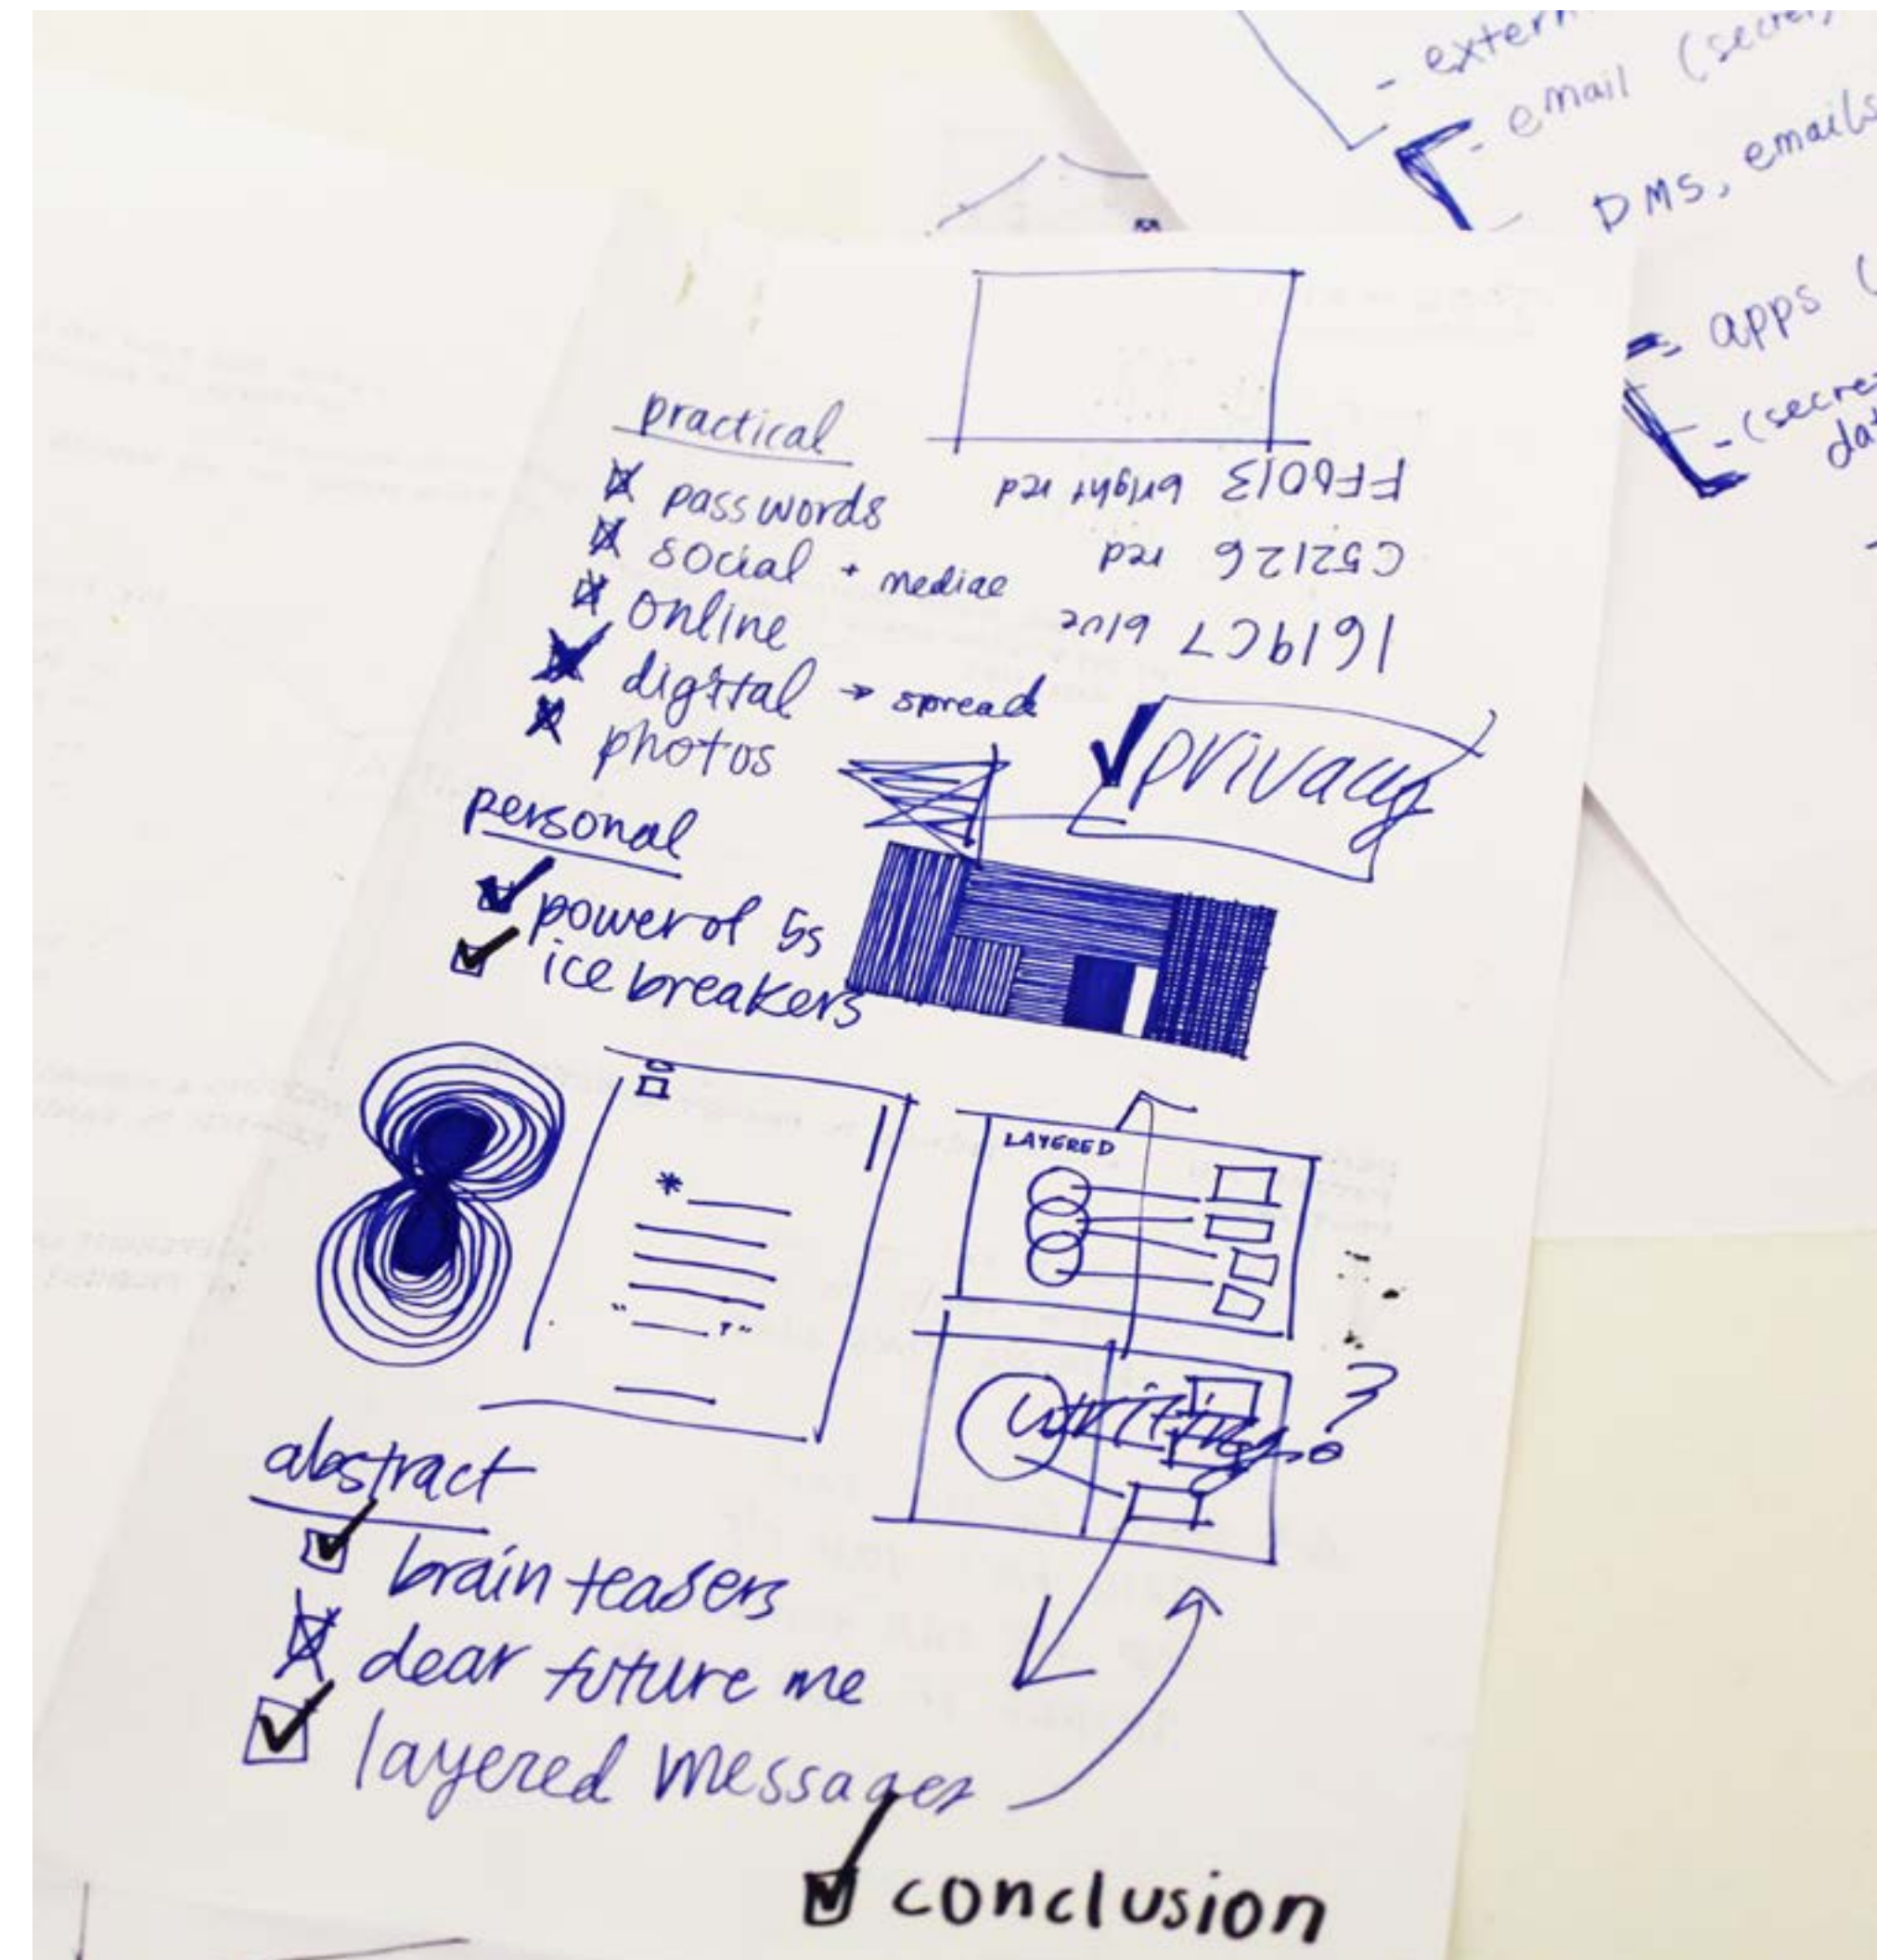 - extern
- email (secret
DMS, emails
apps (
- (secret
dat
practical
passwords
social + mediae
online
digital → spread
photos
FF0013 bright red
C52126 red
1619C7 blue
privacy
personal
power of 5s
ice breakers
LAYERED
writing?
abstract
brain teasers
dear future me
layered messages
conclusion